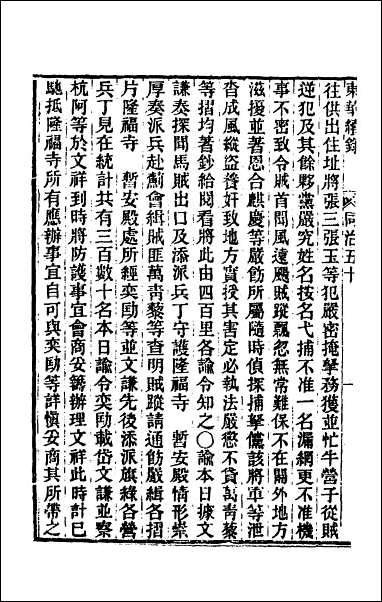 東華續錄　同治五十　一
往供出住址將張三張玉等犯嚴密掩拏務獲並忙牛營子從賊
逆犯及其餘夥黨嚴究姓名按名弋捕不准一名漏網更不准機
事不密致令賊首聞風遠颺賊蹤飄忽無常難保不在關外地方
滋擾並著恩合麒慶等嚴飭所屬隨時偵探捕拏儻該將軍等泄
沓成風縱盜養奸致地方實受其害定必執法嚴懲不貸萬青藜
等摺均著鈔給閱看將此由四百里各諭令知之○諭本日據文
謙奏探聞馬賊出口及添派兵丁守護隆福寺　暫安殿情形崇
厚奏派兵赴薊會緝賊匪萬青藜等查明賊蹤請通飭嚴緝各摺
片隆福寺　暫安殿處所經奕勛等並文謙先後添派旗綠各營
兵丁見在統計共有三百數十名本日諭令奕勛載岱文謙並察
杭阿等於文祥到時將防護事宜會商妥籌辦理文祥此時計已
馳抵隆福寺所有應辦事宜自可與奕勛等詳愼妥商其所帶之